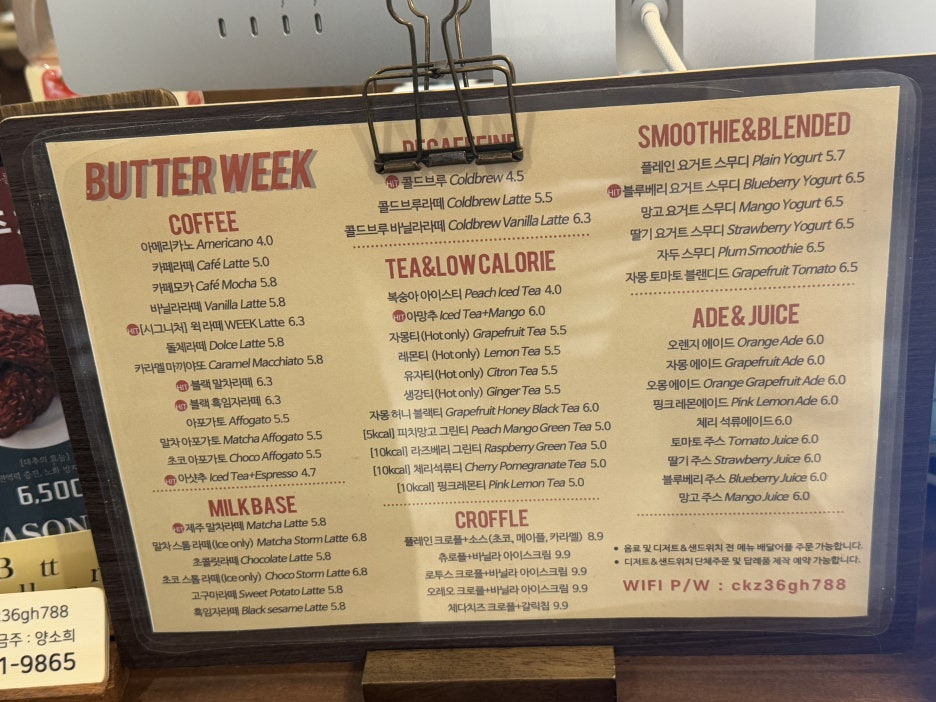 BUTTER WEEK
COFFEE
아메리카노 Americano 4.0
카페라떼 Café Latte 5.0
카페모카 Café Mocha 5.8
바닐라라떼 Vanilla Latte 5.8
HIT [시그니처] 윅 라떼 WEEK Latte 6.3
돌체라떼 Dolce Latte 5.8
카라멜 마끼아또 Caramel Macchiato 5.8
HIT 블랙 말차라떼 6.3
HIT 블랙 흑임자라떼 6.3
아포가토 Affogato 5.5
말차 아포가토 Matcha Affogato 5.5
초코 아포가토 Choco Affogato 5.5
HIT 아샷추 Iced Tea+Espresso 4.7
MILK BASE
HIT 제주 말차라떼 Matcha Latte 5.8
말차 스톰 라떼(Ice only) Matcha Storm Latte 6.8
초콜릿라떼 Chocolate Latte 5.8
초코 스톰 라떼(Ice only) Choco Storm Latte 6.8
고구마라떼 Sweet Potato Latte 5.8
흑임자라떼 Black sesame Latte 5.8
DECAFFEINE
HIT 콜드브루 Coldbrew 4.5
콜드브루라떼 Coldbrew Latte 5.5
콜드브루 바닐라라떼 Coldbrew Vanilla Latte 6.3
TEA&LOW CALORIE
복숭아 아이스티 Peach Iced Tea 4.0
HIT 아망추 Iced Tea+Mango 6.0
자몽티(Hot only) Grapefruit Tea 5.5
레몬티 (Hot only) Lemon Tea 5.5
유자티(Hot only) Citron Tea 5.5
생강티(Hot only) Ginger Tea 5.5
자몽 허니 블랙티 Grapefruit Honey Black Tea 6.0
[5kcal] 피치망고 그린티 Peach Mango Green Tea 5.0
[10kcal] 라즈베리 그린티 Raspberry Green Tea 5.0
[10kcal] 체리석류티 Cherry Pomegranate Tea 5.0
[10kcal] 핑크레몬티 Pink Lemon Tea 5.0
CROFFLE
플레인 크로플+소스(초코, 메이플, 카라멜) 8.9
츄로플+바닐라 아이스크림 9.9
로투스 크로플+바닐라 아이스크림 9.9
오레오 크로플+바닐라 아이스크림 9.9
체다치즈 크로플+갈릭칩 9.9
SMOOTHIE&BLENDED
플레인 요거트 스무디 Plain Yogurt 5.7
HIT 블루베리 요거트 스무디 Blueberry Yogurt 6.5
망고 요거트 스무디 Mango Yogurt 6.5
딸기 요거트 스무디 Strawberry Yogurt 6.5
자두 스무디 Plum Smoothie 6.5
자몽 토마토 블랜디드 Grapefruit Tomato 6.5
ADE & JUICE
오렌지 에이드 Orange Ade 6.0
자몽 에이드 Grapefruit Ade 6.0
오몽 에이드 Orange Grapefruit Ade 6.0
핑크 레몬에이드 Pink Lemon Ade 6.0
체리 석류에이드 6.0
토마토 주스 Tomato Juice 6.0
딸기 주스 Strawberry Juice 6.0
블루베리 주스 Blueberry Juice 6.0
망고 주스 Mango Juice 6.0
• 음료 및 디저트&샌드위치 전 메뉴 배달어플 주문 가능합니다.
• 디저트&샌드위치 단체주문 및 답례품 제작 예약 가능합니다.
WIFI P/W : ckz36gh788
[대추의 효능]
6,500
ASON
B tt r
z36gh788
금주 : 양소희
1-9865